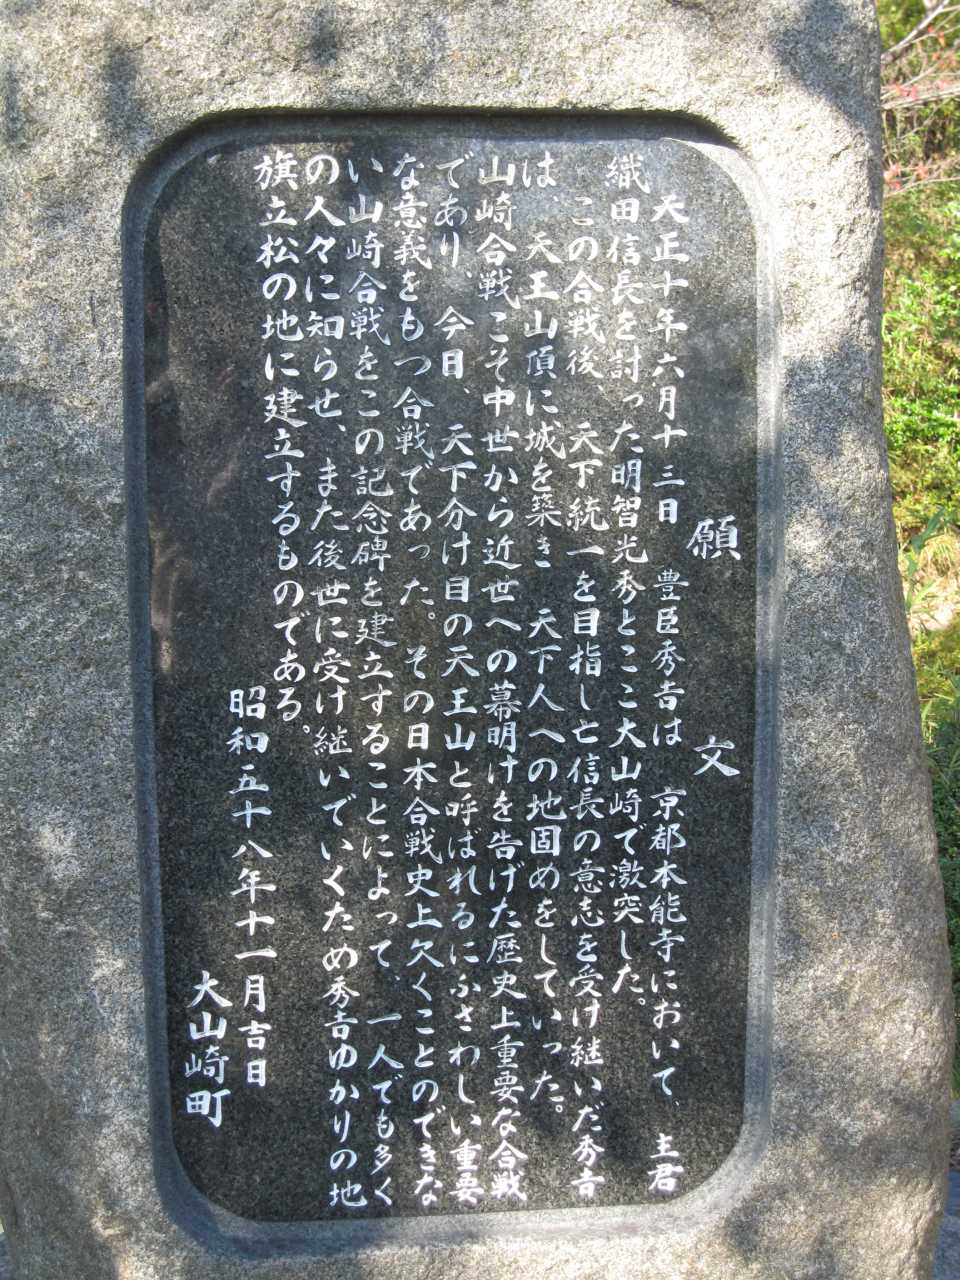 願文
天正十年六月十三日 豊臣秀吉は 京都本能寺において、主君
織田信長を討った明智光秀とここ大山崎で激突した。
この合戦後、天下統一を目指し亡信長の意志を受け継いだ秀吉
は、天王山頂に城を築き 天下人への地固めをしていった。
山崎合戦こそ中世から近世への幕明けを告げた歴史上重要な合戦
であり、今日、天下分け目の天王山と呼ばれるにふさわしい重要
な意義をもつ合戦であった。その日本合戦史上欠くことのできな
い山崎合戦をこの記念碑を建立することによって、一人でも多く
の人々に知らせ、また後世に受け継いでいくため秀吉ゆかりの地
旗立松の地に建立するものである。
昭和五十八年十一月吉日
大山崎町